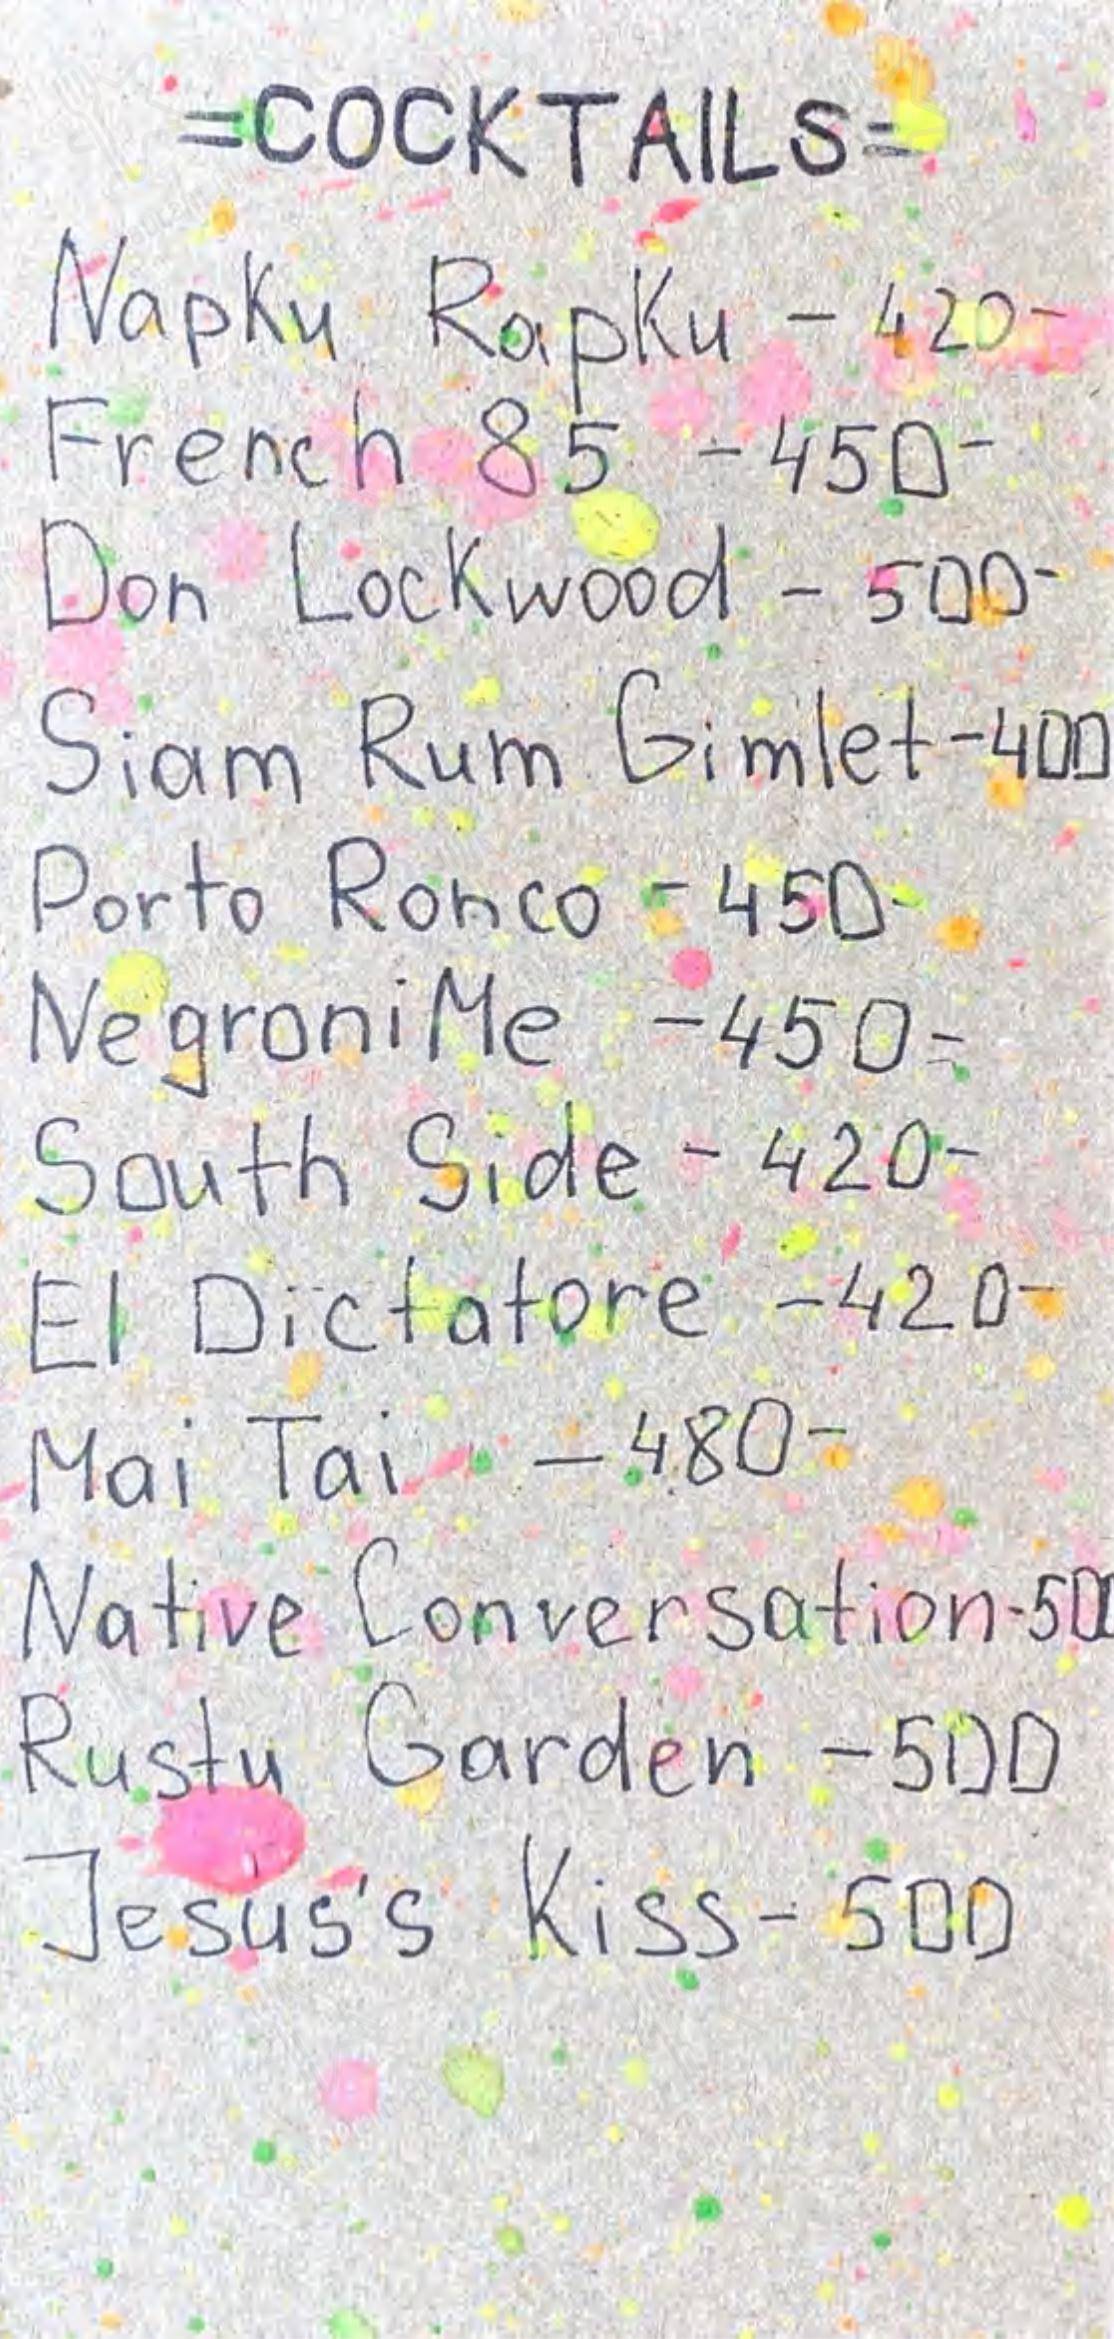 =COCKTAILS=
Napku Rapku - 420-
French 85 - 450-
Don Lockwood - 500-
Siam Rum Gimlet - 400
Porto Ronco - 450-
NegroniMe - 450=
South Side - 420-
El Dictatore - 420-
Mai Tai - 480-
Native Conversation - 500
Rustu Garden - 500
Jesus's Kiss - 500